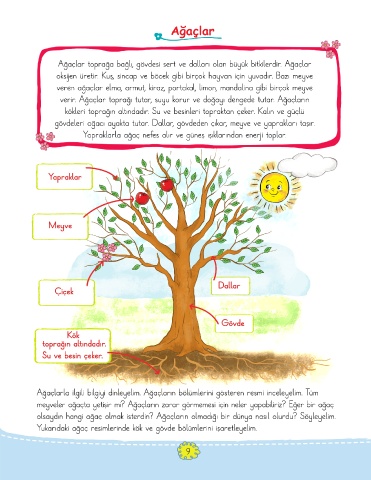 Ağaçlar
Ağaçlar toprağa bağlı, gövdesi sert ve dalları olan büyük bitkilerdir. Ağaçlar
oksijen üretir. Kuş, sincap ve böcek gibi birçok hayvan için yuvadır. Bazı meyve
veren ağaçlar elma, armut, kiraz, portakal, limon, mandalina gibi birçok meyve
verir. Ağaçlar toprağı tutar, suyu korur ve doğayı dengede tutar. Ağaçların
kökleri toprağın altındadır. Su ve besinleri topraktan çeker. Kalın ve güçlü
gövdeleri ağacı ayakta tutar. Dallar, gövdeden çıkar, meyve ve yaprakları taşır.
Yapraklarla ağaç nefes alır ve güneş ışıklarından enerji toplar.
Yapraklar
Meyve
Çiçek
Dallar
Gövde
Kök
toprağın altındadır.
Su ve besin çeker.
Ağaçlarla ilgili bilgiyi dinleyelim. Ağaçların bölümlerini gösteren resmi inceleyelim. Tüm
meyveler ağaçta yetişir mi? Ağaçların zarar görmemesi için neler yapabiliriz? Eğer bir ağaç
olsaydın hangi ağaç olmak isterdin? Ağaçların olmadığı bir dünya nasıl olurdu? Söyleyelim.
Yukarıdaki ağaç resimlerinde kök ve gövde bölümlerini işaretleyelim.
9